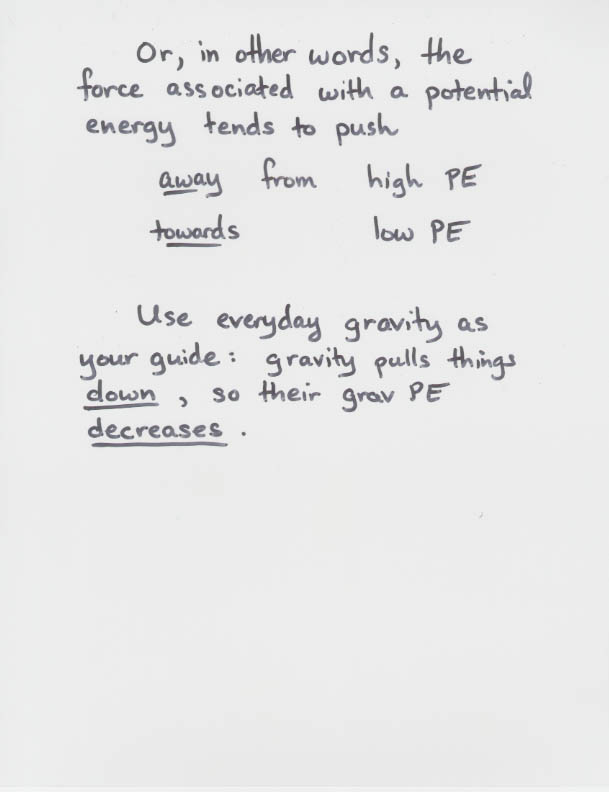 Or, in other words, the
force associated with a potential
energy tends to push
away from high PE
towards low PE
Use everyday gravity as
your guide: gravity pulls things
down, so their grav PE
decreases.